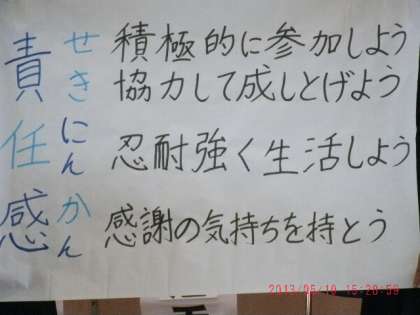 責任感
せきにんかん
積極的に参加しよう
協力して成しとげよう
忍耐強く生活しよう
感謝の気持ちを持とう
2013/05/10 15:28:59